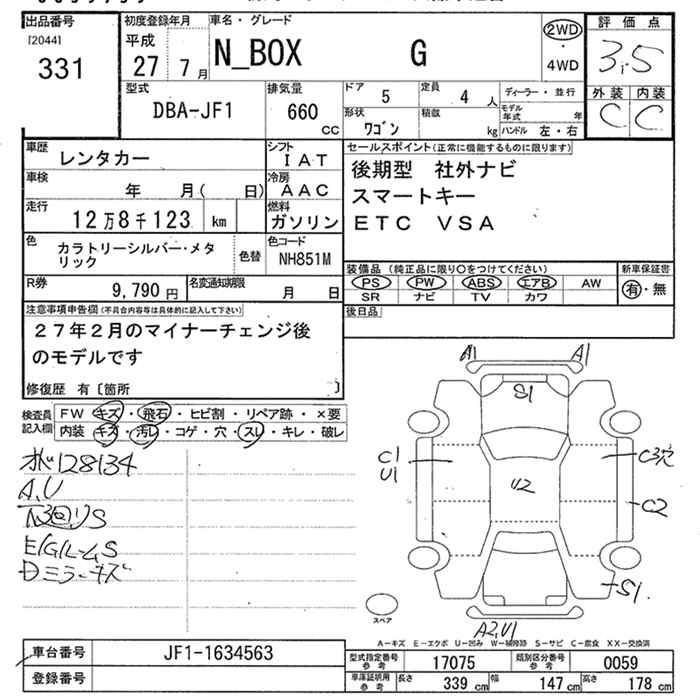 出品番号 初度登録年月 車名・グレード 評価点
[2044]
331
平成 27年 7月
N_BOX G
2WD・4WD
3.5
外装 内装
C C
型式 DBA-JF1
排気量 660 cc
ドア 5 定員 4人 ディーラー・並行
形状 ワゴン 積載 kg モデル年式 年
ハンドル 左・右
車歴 レンタカー
シフト IAT
車検 年 月( 日)
冷房 AAC
走行 12万8千123 km
燃料 ガソリン
色 カラトリーシルバー・メタリック 色替
色コード NH851M
R券 9,790円 名変通知期限 月 日
セールスポイント(正常に機能するものに限ります)
後期型 社外ナビ
スマートキー
ETC VSA
装備品(純正品に限り〇をつけてください) 新車保証書
PS PW ABS エアB AW 有・無
SR ナビ TV カワ
後日品
注意事項申告欄(不具合内容等は具体的に記入して下さい)
27年2月のマイナーチェンジ後
のモデルです
修復歴 有〔箇所 〕
検査員記入欄
FW キズ・飛石・ヒビ割・リペア跡・×要
内装 キズ・汚レ・コゲ・穴・スレ・キレ・破レ
128134
A,U
下回りS
E/Gルーム,S
Dミラーキズ
A1 A1
S1
C1
U1
C3穴
U2
C2
S1
A2,U1
スペア
A－キズ E－エクボ U－凹み W－補修跡 S－サビ C－腐食 XX－交換済
車台番号 JF1-1634563
登録番号
型式指定番号参考 17075 類別区分番号参考 0059
車庫証明用参考 長さ 339cm 幅 147cm 高さ 178cm